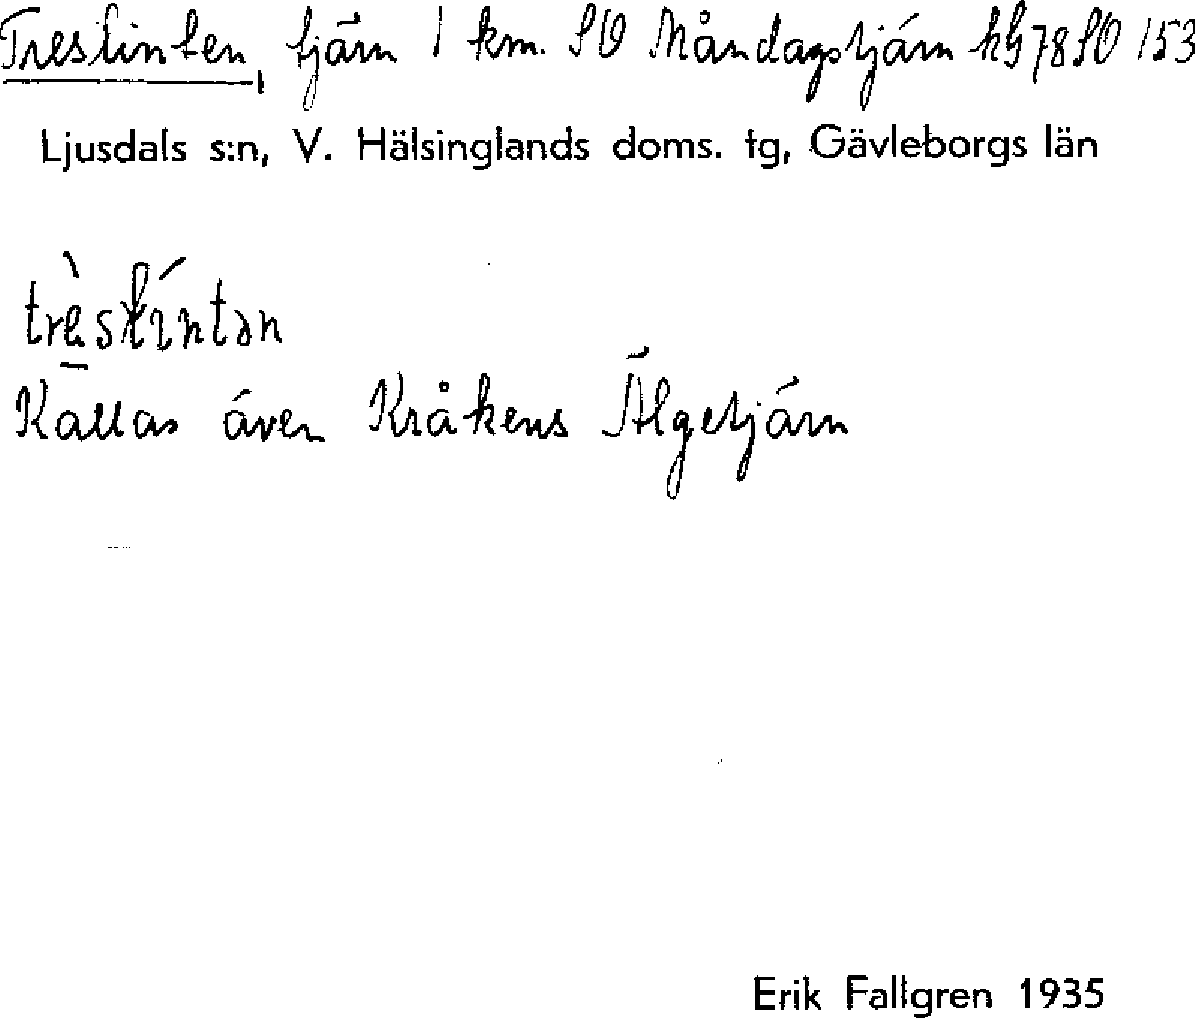 Treslinten, tjärn 1 km. SO Måndagstjärn hG78SO 153
Ljusdals s:n, V. Hälsinglands doms. tg, Gävleborgs län
Kallas även Kråkens Älgetjärn
Erik Fallgren 1935